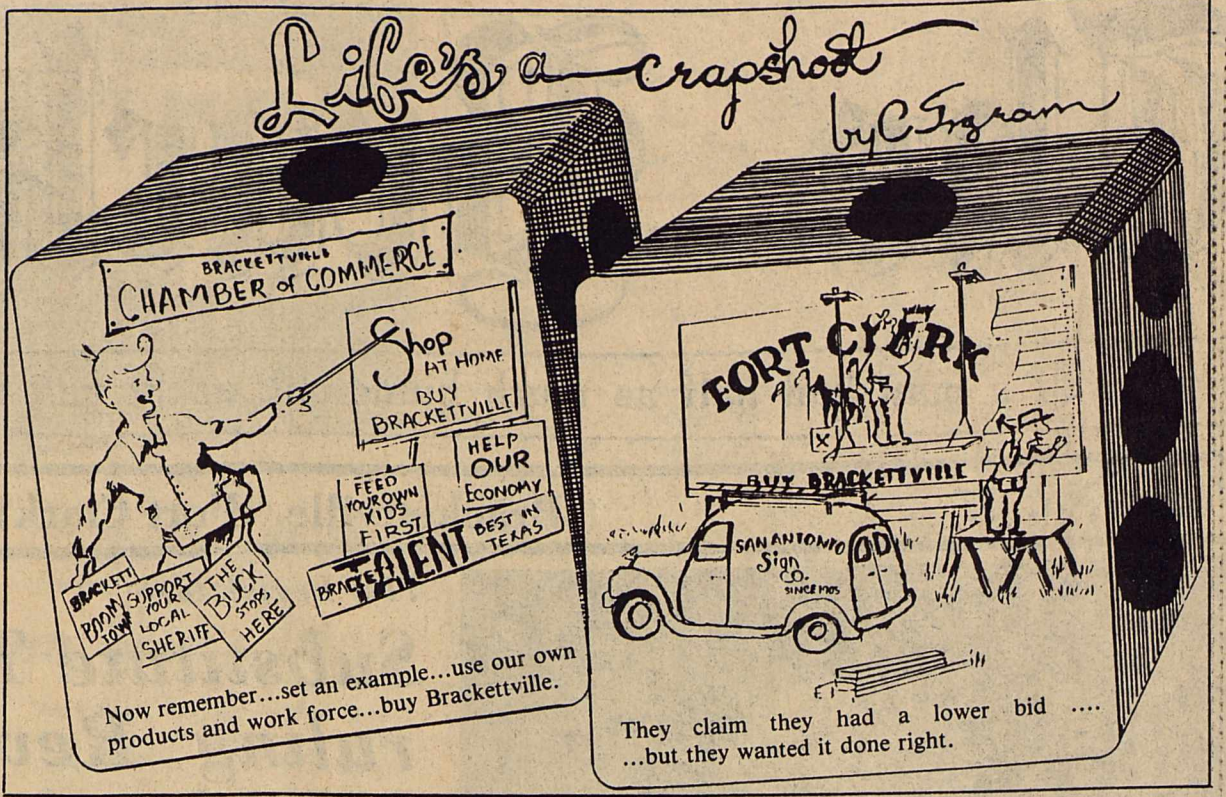 Life's a crapshoot
by C Ingram
BRACKETTVILLE
CHAMBER of COMMERCE
Shop
AT HOME
BUY
BRACKETTVILLE
FEED
YOUR OWN
KIDS
FIRST
HELP
OUR
ECONOMY
TALENT
BEST IN
TEXAS
BRACKETT
BOOM
TOWN
SUPPORT
YOUR
LOCAL
SHERIFF
THE
BUCK
STOPS
HERE
Now remember...set an example...use our own
products and work force...buy Brackettville.
FORT
BUY BRACKETTVILLE
SAN ANTONIO
Sign
CO.
SINCE 1905
They claim they had a lower bid ....
...but they wanted it done right.